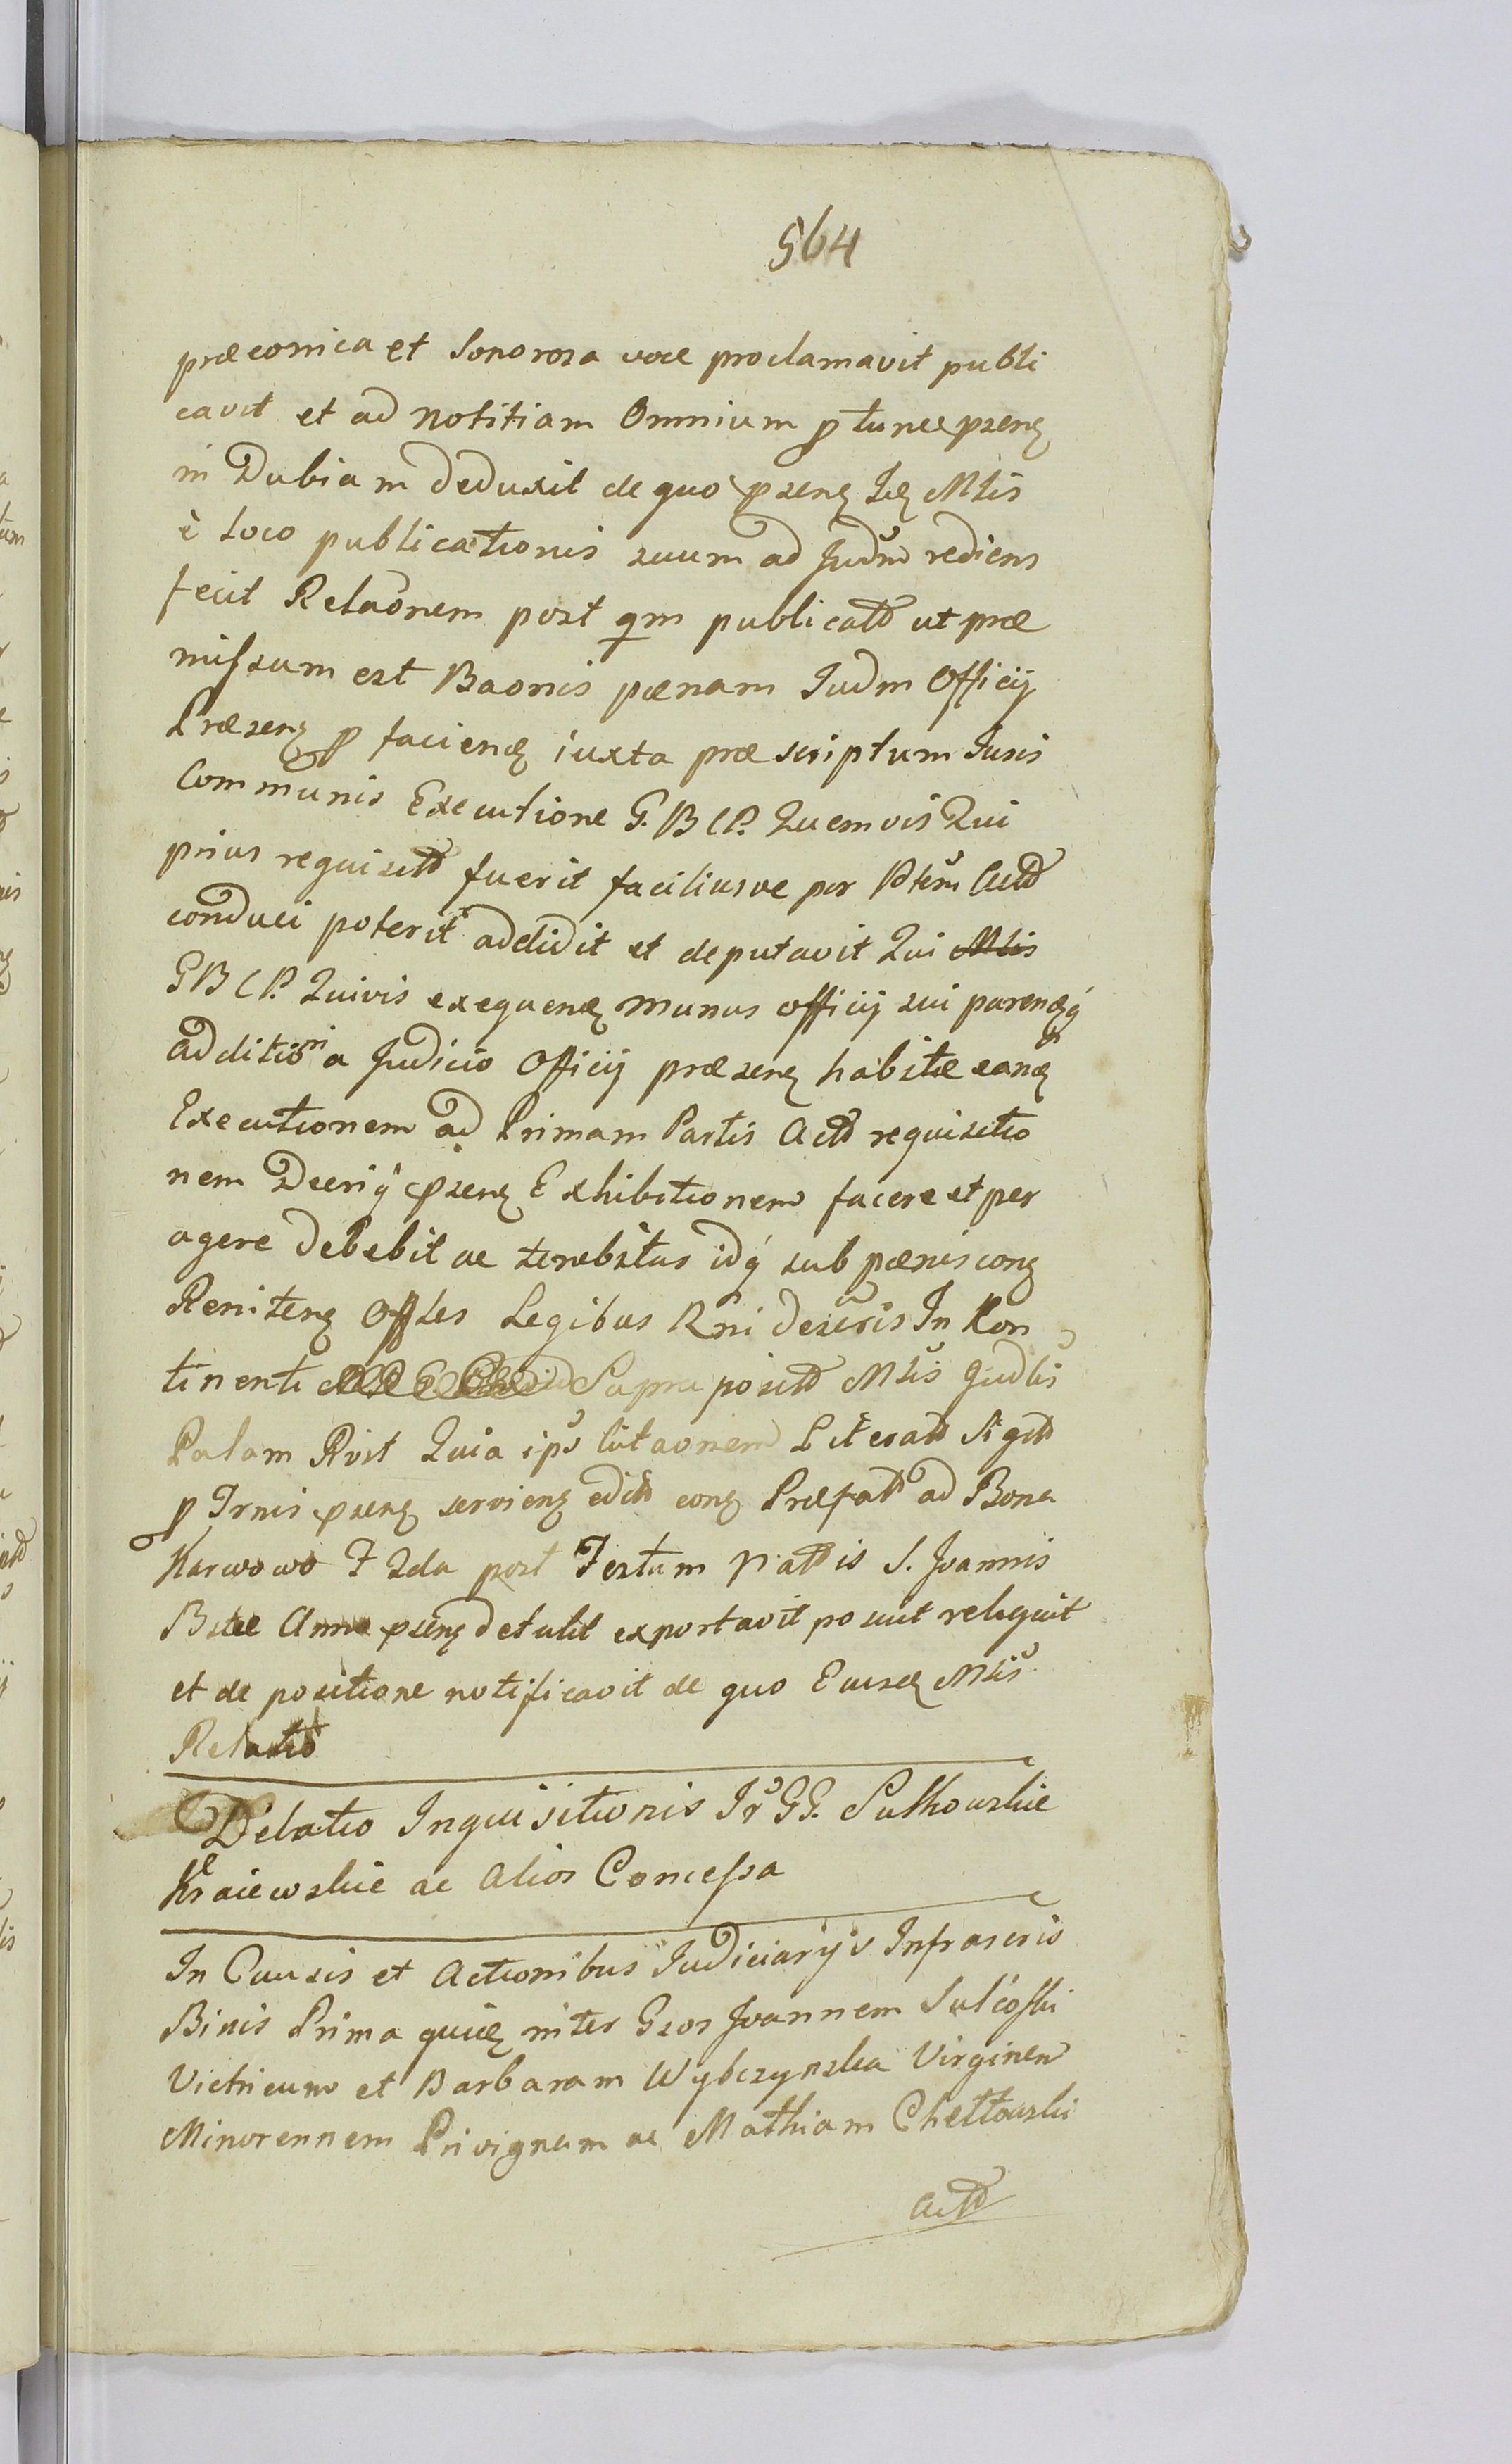 564
præconica et Sonorosa voce proclamavit publi
cavit et ad Notitiam Omnium p tunc pzen
in Dubiam deduxit de quo pzen Mlis
è loco publicationis suum ad Judm rediens
fecit Relaõnem post qm publicatd ut præ
missum est Baonis pænam Judm Officij
Præsen p facien iuxta præ scriptum Juris
Communis Executione G. B C P. Quemvis Qui
prius requisitd fuerit faciliusve per Actd
conduci poterit addidit et deputavit Qui Mlis
G B C P. Quivis exequen munus officij sui paren
additioni a Judicio Officij præsen habitæ ean
Executionem ad Primam Partis Actd requisitio
nem pzen Exhibitionem facere et per
agere debebit ac tenebitus idq sub pænis con
Reniten Offles Legibus Rni descris In Kon
tinenti Supra positd Mlis Judlis
Palam Rvit Quia ips litaonem Literatd Sigtd
p Trnis pzen servien editd con Præfatd ad Bona
Karwowo F 2da post Festum Nattis S. Joannis
Btæ Anno pzen detulit exportavit posuit reliquit
et de positione notificavit de quo Eiusd Mlis
Relatio
Delatio Inquisitionis Ir GG. Sulkowskie
Kraiewskie ac Alios Concessa
In Causis et Actionibus Judiciarijs Infrascris
Binis Prima quid inter Gsos Joannem Sulcoski
Victricum et Barbaram Wybczynska Virginem
Minorennem Privignam ac Mathiam Chełtowski
Actd